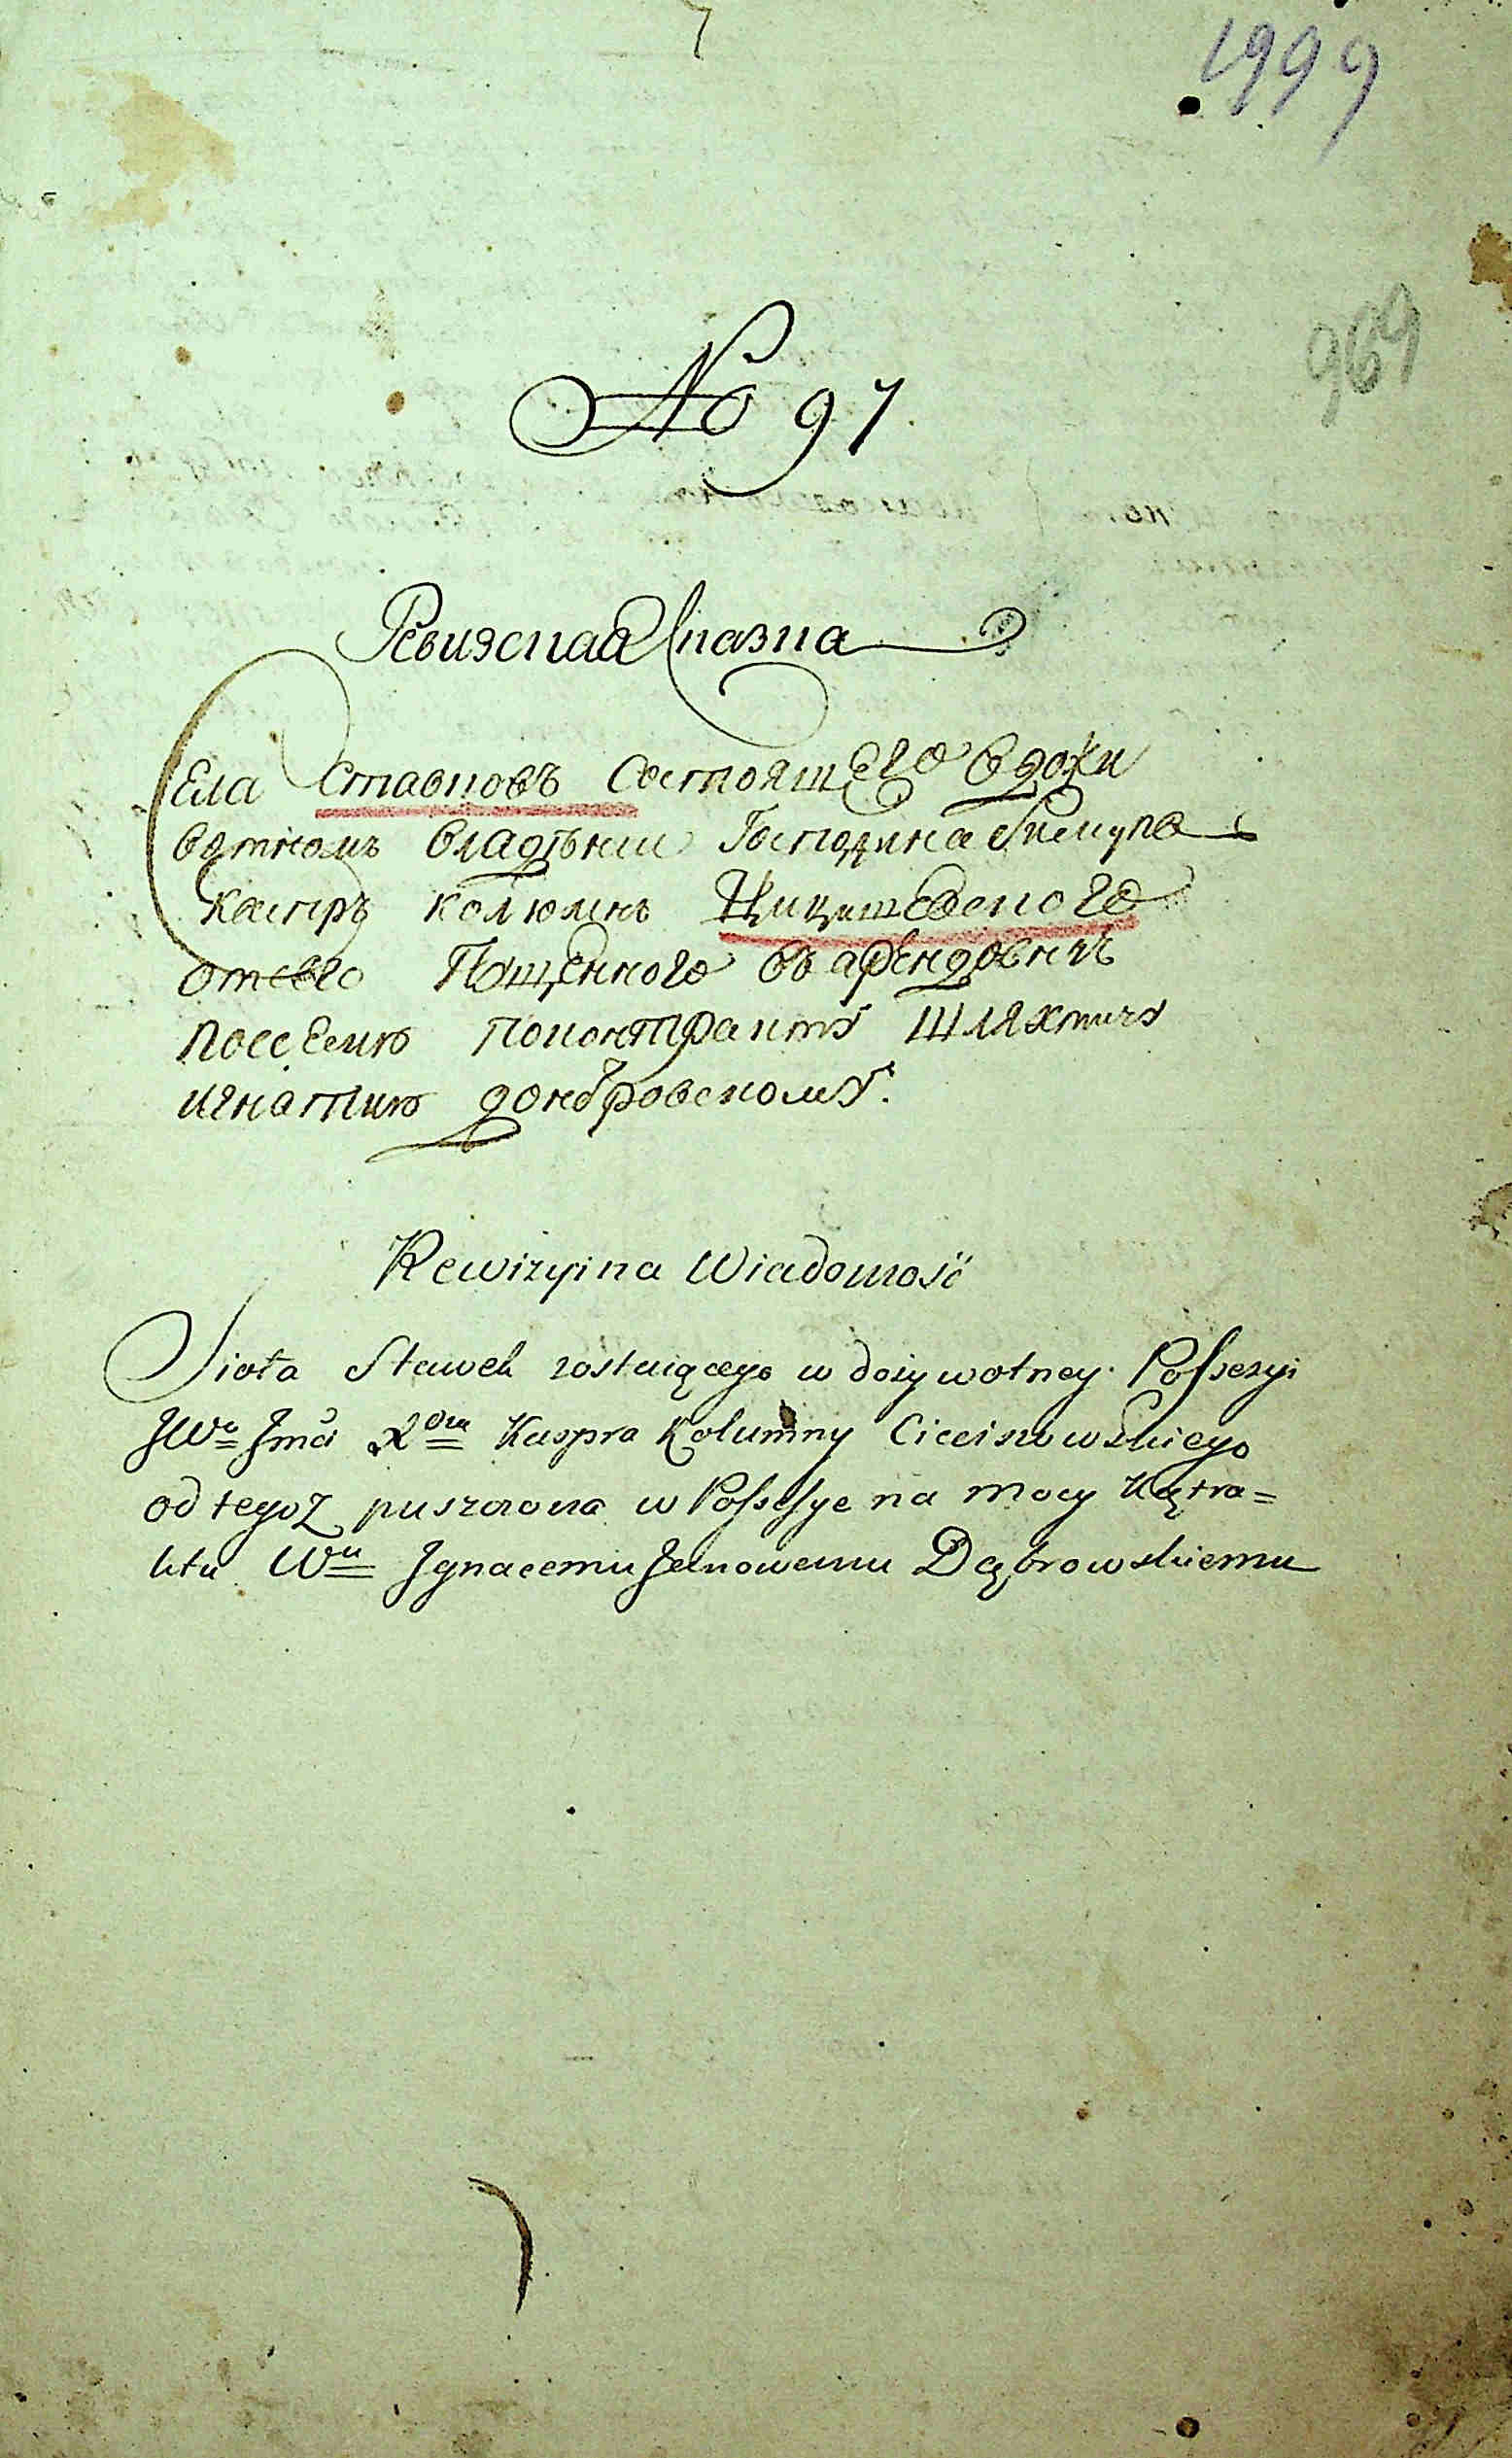 1999
969
№ 97
Ревизская Сказка
Села Ставковъ Состоящего в дожи
вотномъ владѣнии Господина Бискупа
каспръ колюмнъ Цицишевского
отсего Пущенного въ арендовнꙋ
поссесию поконтрактꙋ шляхтичꙋ
игнатию донбровскомꙋ.
Rewizyina Wiadomość
Sioła Stawek zostaiącego w dożywotney Possesyi
JWo Jmći Xdza Kaspra Kolumny Cieciszowskiego
od tegoż puszczona w Possesye na mocy Kątra=
ktu Wu Jgnacemu Janowemu Dąbrowskiemu